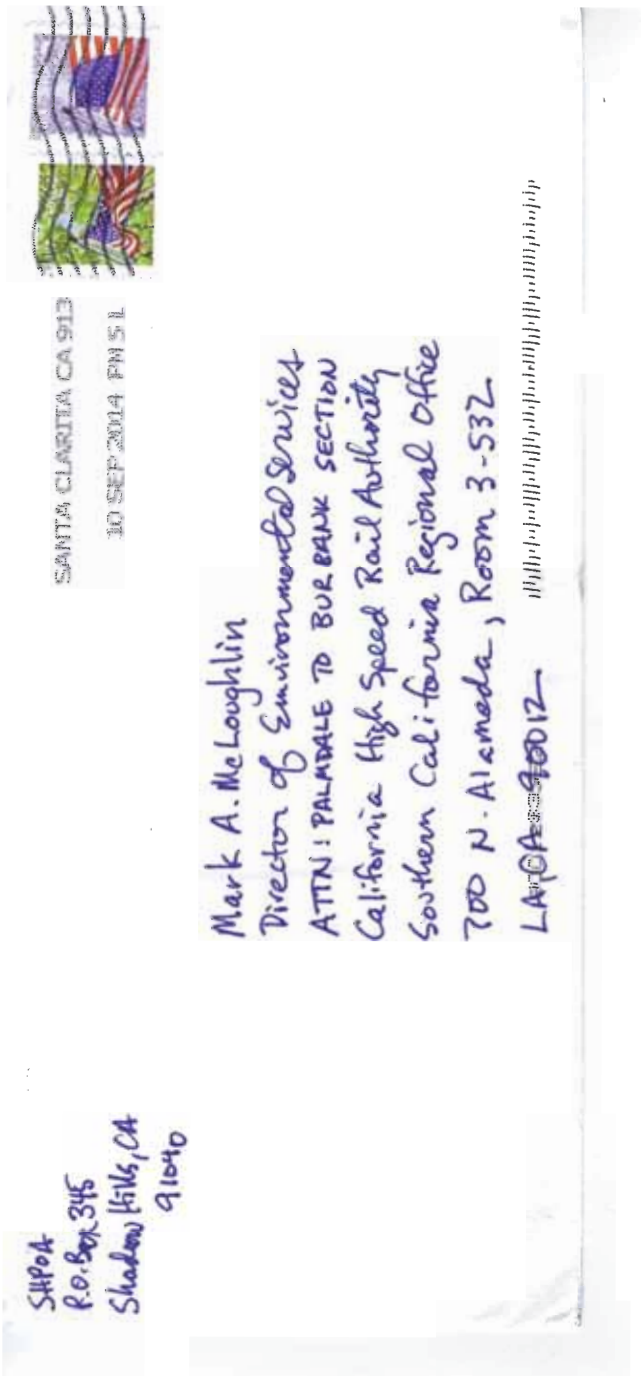 SHPOA
P.O. Box 345
Shadow Hills, CA
91040
SANTA CLARITA CA 913
10 SEP 2014 PM 5 L
Mark A. McLoughlin
Director of Environmental Services
ATTN: PALMDALE TO BURBANK SECTION
California High Speed Rail Authority
Southern California Regional Office
700 N. Alameda, Room 3-532
LA, CA 90012